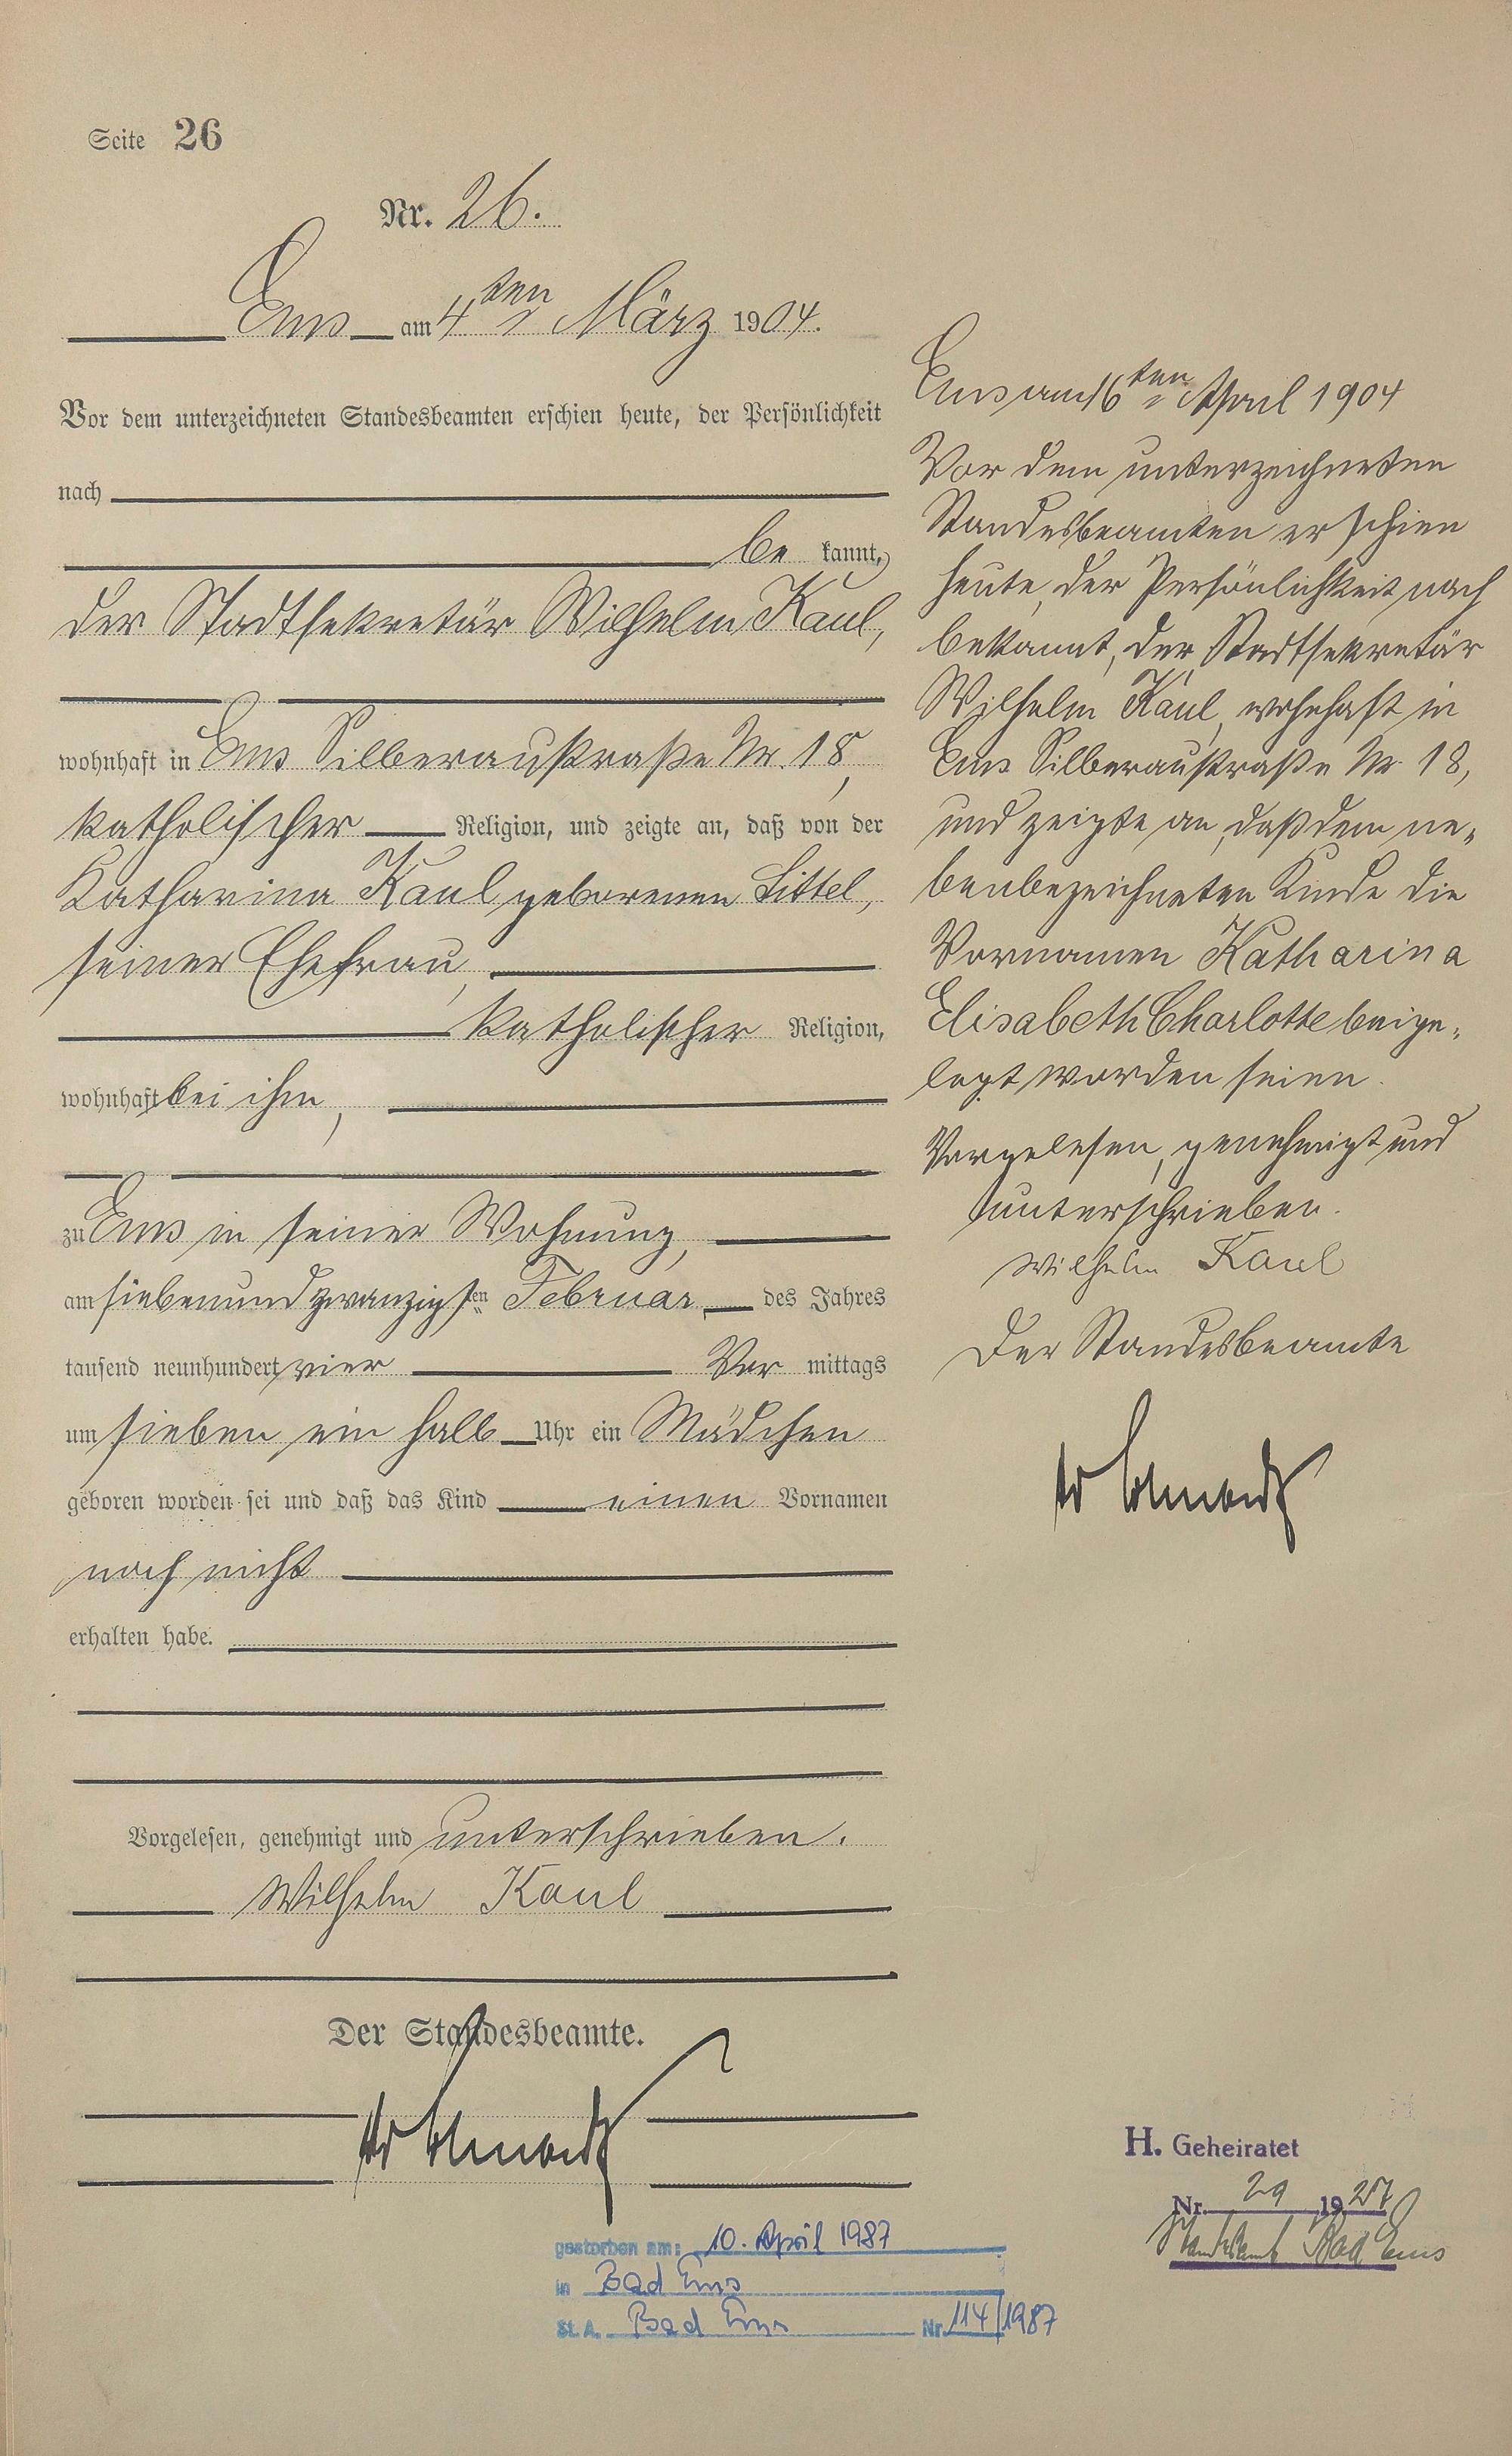 Seite 26
Nr. 26.
Ems am 4ten März 1904.
Vor dem unterzeichneten Standesbeamten erschien heute, der Persönlichkeit
nach
be kannt,
der Stadtsekretär Wilhelm Kaul,
wohnhaft in Ems Silberaustraße Nr. 18,
katholischer Religion, und zeigte an, daß von der
Katharina Kaul geborenen Littel,
seiner Ehefrau,
katholischer Religion,
wohnhaft bei ihm,
zu Ems in seiner Wohnung,
am siebenundzwanzigsten Februar des Jahres
tausend neunhundert vier Vor mittags
um sieben ein halb Uhr ein Mädchen
geboren worden sei und daß das Kind einen Vornamen
noch nicht
erhalten habe.
Vorgelesen, genehmigt und unterschrieben.
Wilhelm Kaul
Der Standesbeamte.
gestorben am: 10. April 1987
in Bad Ems
St. A. Bad Ems Nr. 114/1987
Ems am 16ten April 1904
Vor dem unterzeichneten
Standesbeamten erschien
heute, der Persönlichkeit nach
bekannt, der Stadtsekretär
Wilhelm Kaul, wohnhaft in
Ems Silberaustraße Nr. 18,
und zeigte an, daß dem ne-
benbezeichneten Kinde die
Vornamen Katharina
Elisabeth Charlotte beige-
legt worden seien.
Vorgelesen, genehmigt und
unterschrieben.
Wilhelm Kaul
Der Standesbeamte
H. Geheiratet
Nr. 29 1927
Standesamt Bad Ems